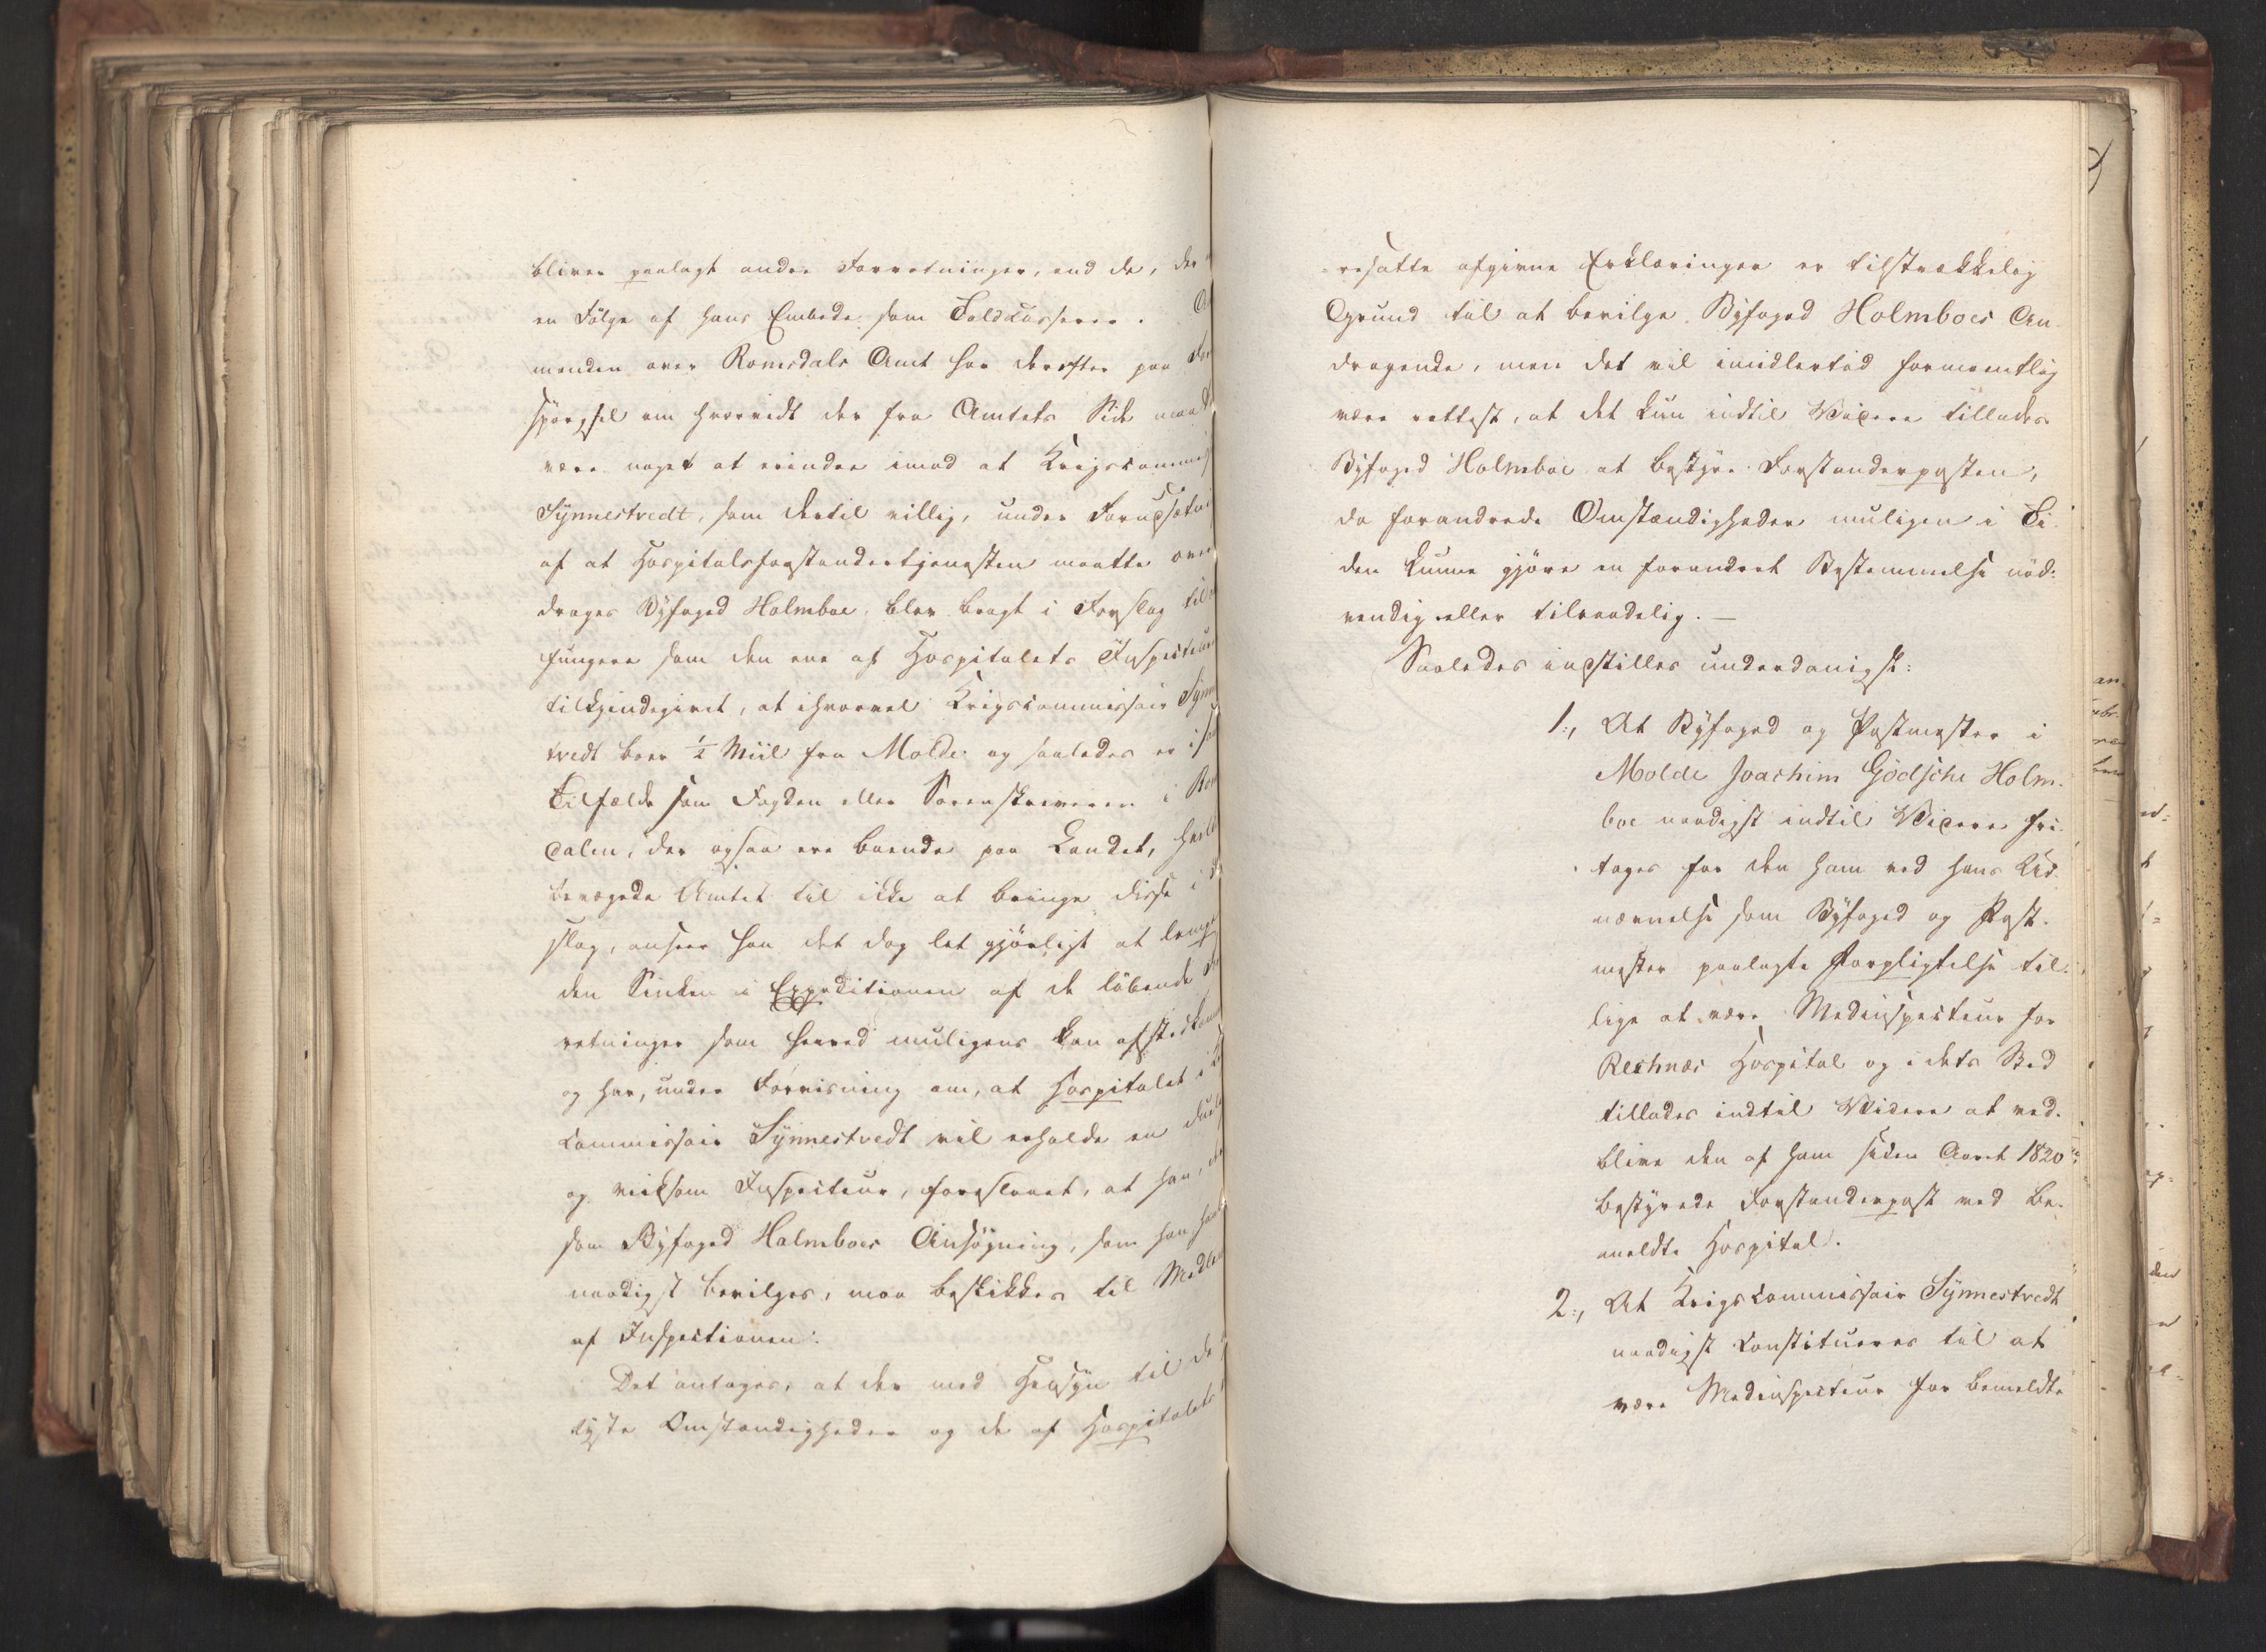 bliver paalagt andre Forretninger, end de, der
en Følge af hans Embede som Toldkasserer. A
manden over Romsdals Amt har derefter paa For
spørgsel om hvorvidt der fra Amtets Side maat
være noget at erindre imod at Krigscommiss
Synnestvedt, som dertil villig, under Forudsætni
af at Hospitalsforstandertjenesten maatte over
drages Byfoged Holmboe, blev bragt i Forslag til
fungere som den ene af Hospitalets Inspecteur
tilkjendegivet, at ihvorvel Krigscommissair Synn
tvedt boer ½ Miil fra Molde og saaledes er i sa
Tilfælde som Fogden eller Sorenskriveren i Rom
dalen, der ogsaa ere boende paa Landet, hvilk
bevægede Amtet til ikke at bringe disse i
slag, anseer han det dog let gjørligt at
den Sinken i Expeditionen af de løbende For
retninger som herved muligens kan afstedkom
og har, under Formening om, at Hospitalet i K
commissair Synnestvedt vil erholde en duel
og virksom Inspecteur, foreslaaet, at han,
som Byfoged Holmboes Ansøgning, som han haa
naadigst bevilges, maa beskikkes til Medlem
af Inspectionen.
Det antages, at der med Hensyn til de
lyste Omstændigheder og de af Hospitalets
resatte afgivne Erklæringer er tilstrækkelig
Grund til at bevilge Byfoged Holmboes An-
dragende, men det vil imidlertid formeentlig
være rettest, at det kun indtil Videre tillades
Byfoged Holmboe at bestyre Forstanderposten,
da forandrede Omstændigheder muligen i Ti-
den kunne gjøre en forandret Bestemmelse nød-
vendig eller tilraadelig. —
Saaledes indstilles underdanigst:
1., At Byfoged og Postmester i
Molde Joachim Gödsche Holm-
boe naadigst indtil Videre fri-
tages for den ham ved hans Ud-
nævnelse som Byfoged og Post-
mester paalagte Forpligtelse til-
lige at være Medinspecteur for
Rechnæs Hospital og i dets Sted
tillades indtil Videre at ved-
blive den af ham siden Aaret 1820
bestyrede Forstanderpost ved be-
meldte Hospital.
2., At Krigscommissair Synnestvedt
naadigst constitueres til at
være Medinspecteur for bemeldte